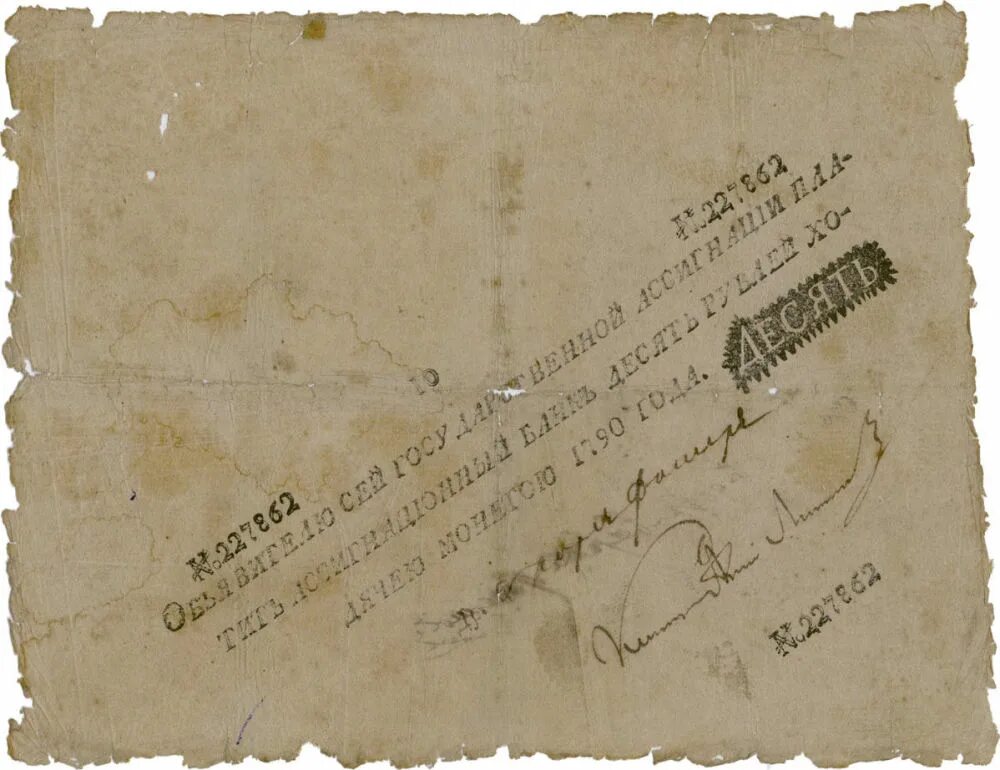 №227862
10
№227862
Объявителю сей государственной ассигнаціи пла-
тить ассигнаціонный банкъ десять рублей хо-
дячею монетою 1790 года.
ДЕСЯТЬ
№227862